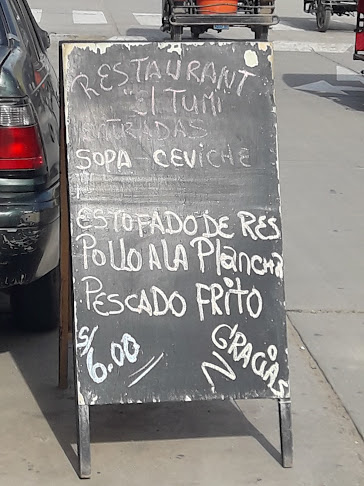 RESTAURANT
El TUMI
ENTRADAS
SOPA - CEVICHE
ESTOFADO DE RES
Pollo A LA PlancHA
PESCADO FRITO
S/ 6.00
GRACIAS